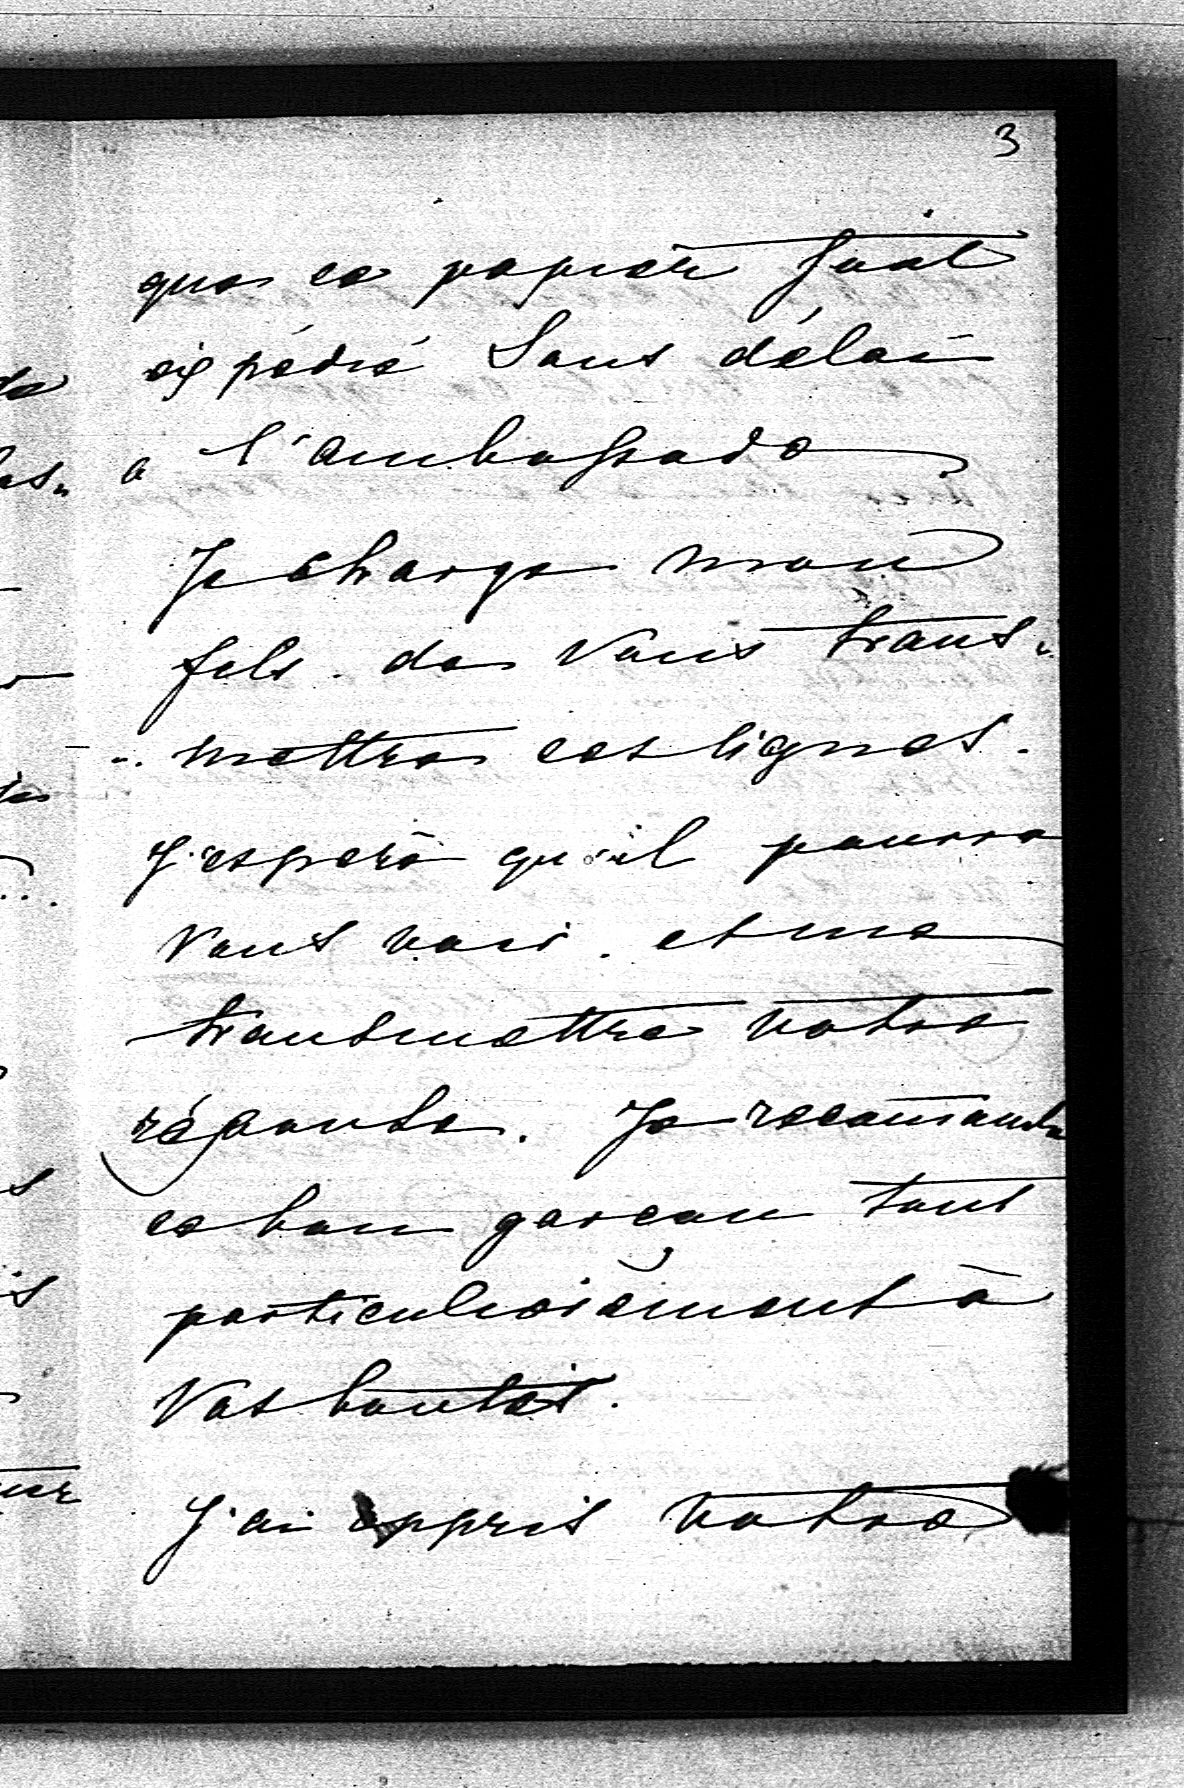 3
que ce papier fut
expédié sans délai
a l'ambassade.
Je charge mon
fils de vous trans-
mettre ces lignes.
J'espère qu'il pourra
vous voir et me
transmettre votre
réponse. Je recommande
ce bon garçon tout
particulièrement à
vos bontés.
J'ai appris votre